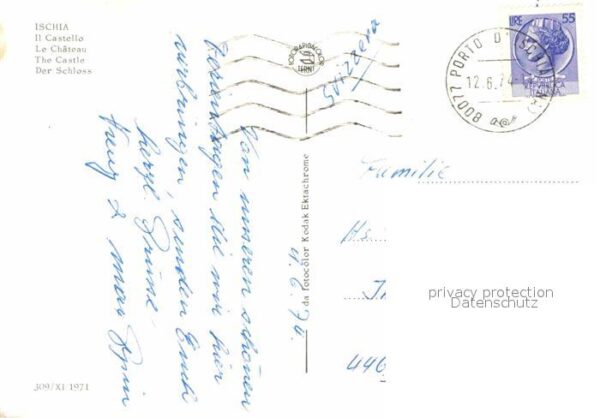 ISCHIA
Il Castello
Le Château
The Castle
Der Schloss
309/XI 1971
da fotocolor Kodak Ektachrome
LIRE 55
80077 PORTO D'ISCHIA (NA)
12.6.74
TERNI
Svizzera
Von unseren schönen
Ferientagen die wir hier
verbringen, senden Euch
herzl. Grüsse,
4.6.74.
Familie
Hs.
446
privacy protection
Datenschutz